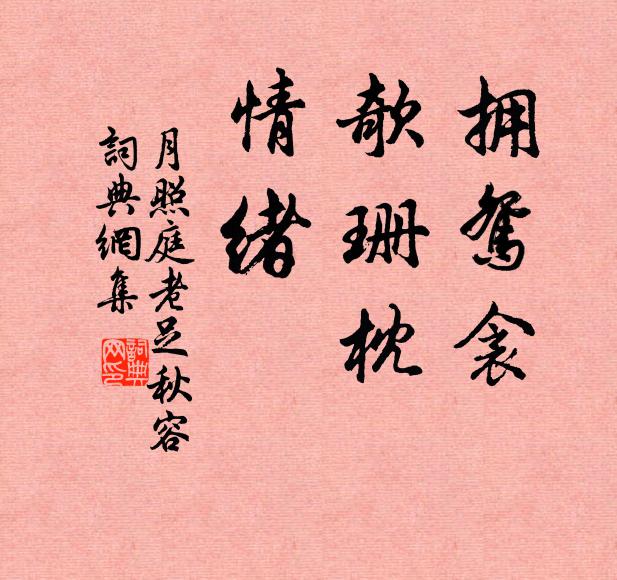 拥鸳衾
欹珊枕
情绪
月照庭老足秋容
詞典網集
詞典网印